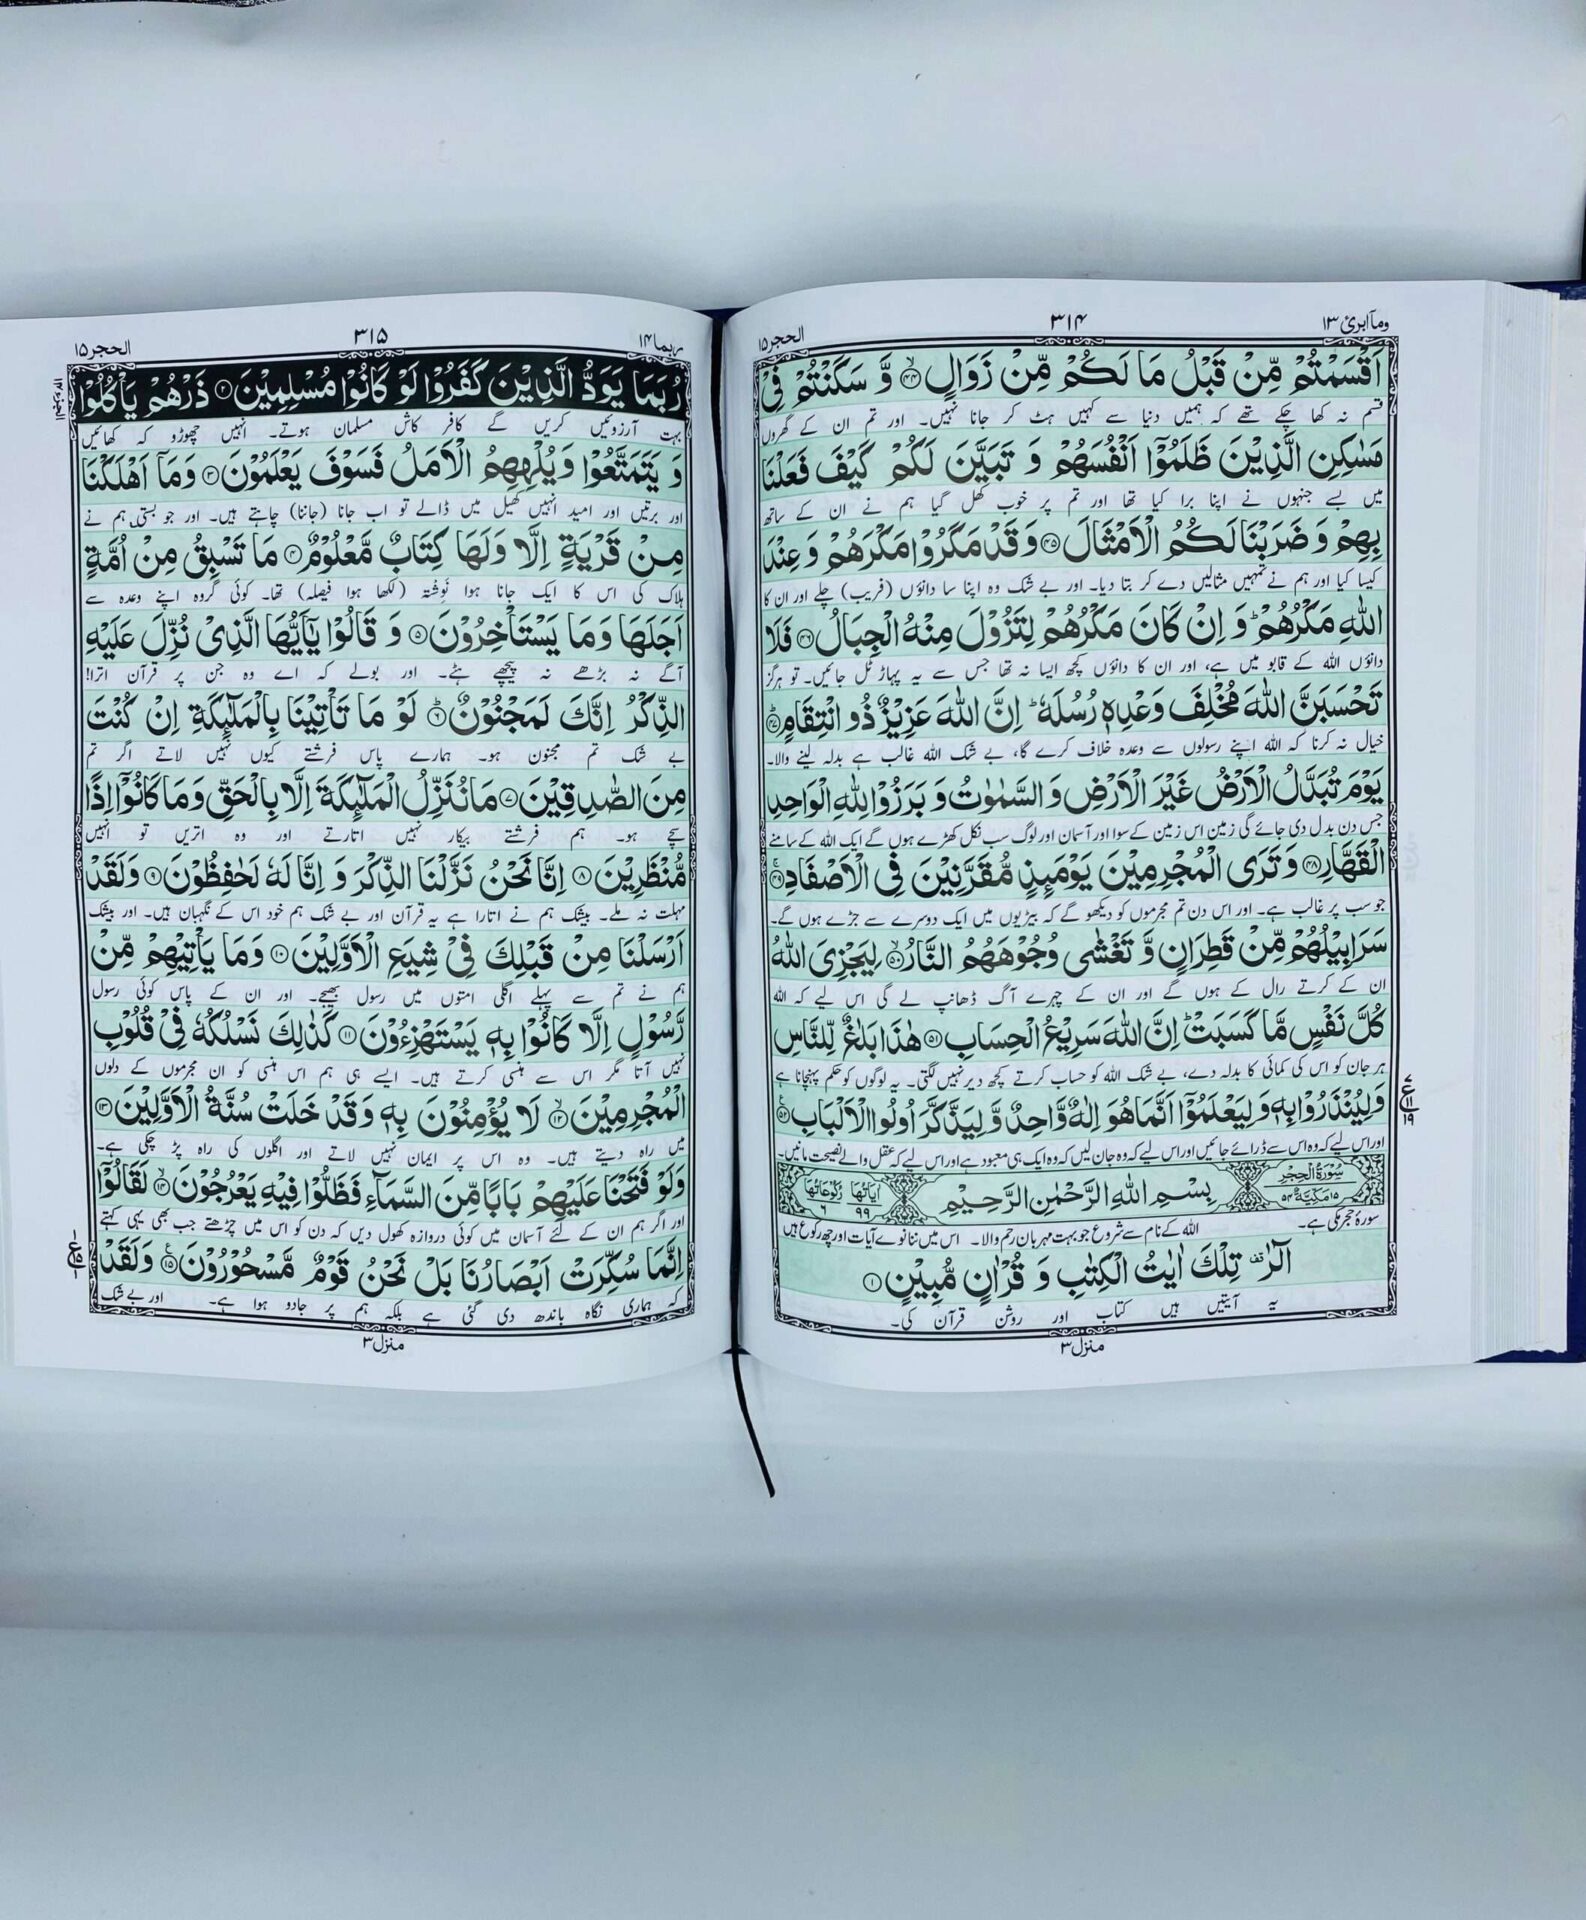 وما ابرئ ۱۳
۳۱۴
الحجر ۱۵
اَقْسَمْتُمْ مِّنْ قَبْلُ مَا لَكُمْ مِّنْ زَوَالٍ ﴿۴۴﴾ وَّ سَكَنْتُمْ فِیْ
قسم نہ کھا چکے تھے کہ ہمیں دنیا سے کہیں ہٹ کر جانا نہیں۔ اور تم ان کے گھروں
مَسٰكِنِ الَّذِیْنَ ظَلَمُوْۤا اَنْفُسَهُمْ وَ تَبَیَّنَ لَكُمْ كَیْفَ فَعَلْنَا
میں بسے جنہوں نے اپنا برا کیا تھا اور تم پر خوب کھل گیا ہم نے ان کے ساتھ
بِهِمْ وَ ضَرَبْنَا لَكُمُ الْاَمْثَالَ ﴿۴۵﴾ وَ قَدْ مَكَرُوْا مَكْرَهُمْ وَ عِنْدَ
کیسا کیا اور ہم نے تمہیں مثالیں دے کر بتا دیا۔ اور بے شک وہ اپنا سا داؤں (فریب) چلے اور ان کا
اللّٰهِ مَكْرُهُمْ ؕ وَ اِنْ كَانَ مَكْرُهُمْ لِتَزُوْلَ مِنْهُ الْجِبَالُ ﴿۴۶﴾ فَلَا
داؤں اللہ کے قابو میں ہے، اور ان کا داؤں کچھ ایسا نہ تھا جس سے یہ پہاڑ ٹل جائیں۔ تو ہرگز
تَحْسَبَنَّ اللّٰهَ مُخْلِفَ وَعْدِهٖ رُسُلَهٗ ؕ اِنَّ اللّٰهَ عَزِیْزٌ ذُو انْتِقَامٍ ﴿۴۷﴾
خیال نہ کرنا کہ اللہ اپنے رسولوں سے وعدہ خلاف کرے گا، بے شک اللہ غالب ہے بدلہ لینے والا۔
یَوْمَ تُبَدَّلُ الْاَرْضُ غَیْرَ الْاَرْضِ وَ السَّمٰوٰتُ وَ بَرَزُوْا لِلّٰهِ الْوَاحِدِ
جس دن بدل دی جائے گی زمین اس زمین کے سوا اور آسمان اور لوگ سب نکل کھڑے ہوں گے ایک اللہ کے سامنے
الْقَهَّارِ ﴿۴۸﴾ وَ تَرَی الْمُجْرِمِیْنَ یَوْمَىِٕذٍ مُّقَرَّنِیْنَ فِی الْاَصْفَادِ ﴿۴۹﴾
جو سب پر غالب ہے۔ اور اس دن تم مجرموں کو دیکھو گے کہ بیڑیوں میں ایک دوسرے سے جڑے ہوں گے۔
سَرَابِیْلُهُمْ مِّنْ قَطِرَانٍ وَّ تَغْشٰی وُجُوْهَهُمُ النَّارُ ﴿۵۰﴾ لِیَجْزِیَ اللّٰهُ
ان کے کرتے رال کے ہوں گے اور ان کے چہرے آگ ڈھانپ لے گی اس لیے کہ اللہ
كُلَّ نَفْسٍ مَّا كَسَبَتْ ؕ اِنَّ اللّٰهَ سَرِیْعُ الْحِسَابِ ﴿۵۱﴾ هٰذَا بَلٰغٌ لِّلنَّاسِ
ہر جان کو اس کی کمائی کا بدلہ دے، بے شک اللہ کو حساب کرتے کچھ دیر نہیں لگتی۔ یہ لوگوں کو حکم پہنچانا ہے
وَ لِیُنْذَرُوْا بِهٖ وَ لِیَعْلَمُوْۤا اَنَّمَا هُوَ اِلٰهٌ وَّاحِدٌ وَّ لِیَذَّكَّرَ اُولُوا الْاَلْبَابِ ﴿۵۲﴾
اور اس لیے کہ وہ اس سے ڈرائے جائیں اور اس لیے کہ وہ جان لیں کہ وہ ایک ہی معبود ہے اور اس لیے کہ عقل والے نصیحت مانیں۔
ع ۷ ۱۱ ۱۹
سُوْرَةُ الْحِجْرِ ۱۵ مَكِّیَّةٌ ۵۴
بِسْمِ اللّٰهِ الرَّحْمٰنِ الرَّحِیْمِ
اٰیَاتُهَا ۹۹ رُكُوْعَاتُهَا ۶
سورۂ حجر مکی ہے۔ اللہ کے نام سے شروع جو بہت مہربان رحم والا۔ اس میں ننانوے آیات اور چھ رکوع ہیں
الٓرٰ ۫ تِلْكَ اٰیٰتُ الْكِتٰبِ وَ قُرْاٰنٍ مُّبِیْنٍ ﴿۱﴾
یہ آیتیں ہیں کتاب اور روشن قرآن کی۔
منزل ۳
ربما ۱۴
۳۱۵
الحجر ۱۵
رُبَمَا یَوَدُّ الَّذِیْنَ كَفَرُوْا لَوْ كَانُوْا مُسْلِمِیْنَ ﴿۲﴾ ذَرْهُمْ یَاْكُلُوْا
بہت آرزوئیں کریں گے کافر کاش مسلمان ہوتے۔ انہیں چھوڑو کہ کھائیں
وَ یَتَمَتَّعُوْا وَ یُلْهِهِمُ الْاَمَلُ فَسَوْفَ یَعْلَمُوْنَ ﴿۳﴾ وَ مَاۤ اَهْلَكْنَا
اور برتیں اور امید انہیں کھیل میں ڈالے تو اب جانا (جاننا) چاہتے ہیں۔ اور جو بستی ہم نے
مِنْ قَرْیَةٍ اِلَّا وَ لَهَا كِتَابٌ مَّعْلُوْمٌ ﴿۴﴾ مَا تَسْبِقُ مِنْ اُمَّةٍ
ہلاک کی اس کا ایک جانا ہوا نوِشتہ (لکھا ہوا فیصلہ) تھا۔ کوئی گروہ اپنے وعدہ سے
اَجَلَهَا وَ مَا یَسْتَاْخِرُوْنَ ﴿۵﴾ وَ قَالُوْا یٰۤاَیُّهَا الَّذِیْ نُزِّلَ عَلَیْهِ
آگے نہ بڑھے نہ پیچھے ہٹے۔ اور بولے کہ اے وہ جن پر قرآن اترا!
الذِّكْرُ اِنَّكَ لَمَجْنُوْنٌ ﴿۶﴾ لَوْ مَا تَاْتِیْنَا بِالْمَلٰٓىِٕكَةِ اِنْ كُنْتَ
بے شک تم مجنون ہو۔ ہمارے پاس فرشتے کیوں نہیں لاتے اگر تم
مِنَ الصّٰدِقِیْنَ ﴿۷﴾ مَا نُنَزِّلُ الْمَلٰٓىِٕكَةَ اِلَّا بِالْحَقِّ وَ مَا كَانُوْۤا اِذًا
سچے ہو۔ ہم فرشتے بیکار نہیں اتارتے اور وہ اتریں تو انہیں
مُّنْظَرِیْنَ ﴿۸﴾ اِنَّا نَحْنُ نَزَّلْنَا الذِّكْرَ وَ اِنَّا لَهٗ لَحٰفِظُوْنَ ﴿۹﴾ وَ لَقَدْ
مہلت نہ ملے۔ بیشک ہم نے اتارا ہے یہ قرآن اور بے شک ہم خود اس کے نگہبان ہیں۔ اور بیشک
اَرْسَلْنَا مِنْ قَبْلِكَ فِیْ شِیَعِ الْاَوَّلِیْنَ ﴿۱۰﴾ وَ مَا یَاْتِیْهِمْ مِّنْ
ہم نے تم سے پہلے اگلی امتوں میں رسول بھیجے۔ اور ان کے پاس کوئی رسول
رَّسُوْلٍ اِلَّا كَانُوْا بِهٖ یَسْتَهْزِءُوْنَ ﴿۱۱﴾ كَذٰلِكَ نَسْلُكُهٗ فِیْ قُلُوْبِ
نہیں آتا مگر اس سے ہنسی کرتے ہیں۔ ایسے ہی ہم اس ہنسی کو ان مجرموں کے دلوں
الْمُجْرِمِیْنَ ﴿۱۲﴾ لَا یُؤْمِنُوْنَ بِهٖ وَ قَدْ خَلَتْ سُنَّةُ الْاَوَّلِیْنَ ﴿۱۳﴾
میں راہ دیتے ہیں۔ وہ اس پر ایمان نہیں لاتے اور اگلوں کی راہ پڑ چکی ہے۔
وَ لَوْ فَتَحْنَا عَلَیْهِمْ بَابًا مِّنَ السَّمَآءِ فَظَلُّوْا فِیْهِ یَعْرُجُوْنَ ﴿۱۴﴾ لَقَالُوْۤا
اور اگر ہم ان کے لئے آسمان میں کوئی دروازہ کھول دیں کہ دن کو اس میں چڑھتے جب بھی یہی کہتے
اِنَّمَا سُكِّرَتْ اَبْصَارُنَا بَلْ نَحْنُ قَوْمٌ مَّسْحُوْرُوْنَ ﴿۱۵﴾ وَ لَقَدْ
کہ ہماری نگاہ باندھ دی گئی ہے بلکہ ہم پر جادو ہوا ہے۔ اور بے شک
منزل ۳